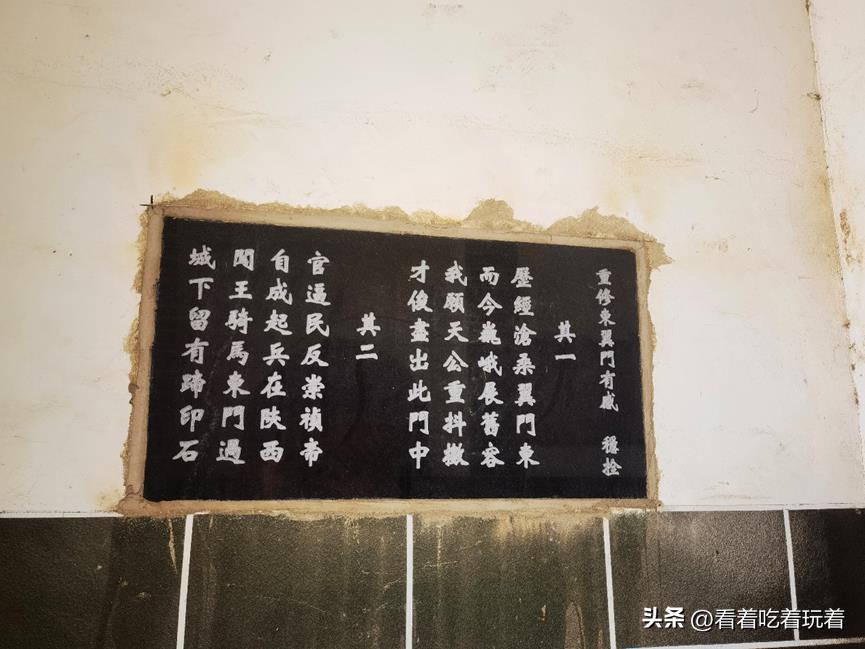 重修東翼門有感 穩拴
其一
歷經滄桑翼門東
而今巍峨展舊容
我願天公重抖擻
才俊盡出此門中
其二
官逼民反崇禎帝
自成起兵在陜西
闖王騎馬東門過
城下留有蹄印石
头条 @看着吃着玩着